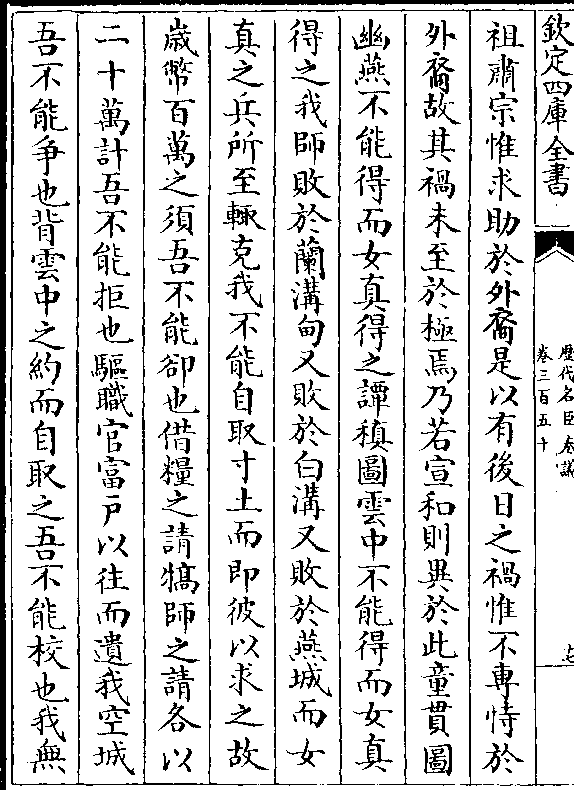 欽定四庫全書
歷代名臣奏議
卷三百五十
十七
祖肅宗惟求助於外裔是以有後日之禍惟不專恃於
外裔故其禍未至於極焉乃若宣和則異於此童貫圖
幽燕不能得而女真得之譚稹圖雲中不能得而女真
得之我師敗於蘭溝甸又敗於白溝又敗於燕城而女
真之兵所至輒克我不能自取寸土而即彼以求之故
歲幣百萬之須吾不能卻也借糧之請犒師之請各以
二十萬計吾不能拒也驅職官富戶以往而遺我空城
吾不能爭也背雲中之約而自取之吾不能校也我無